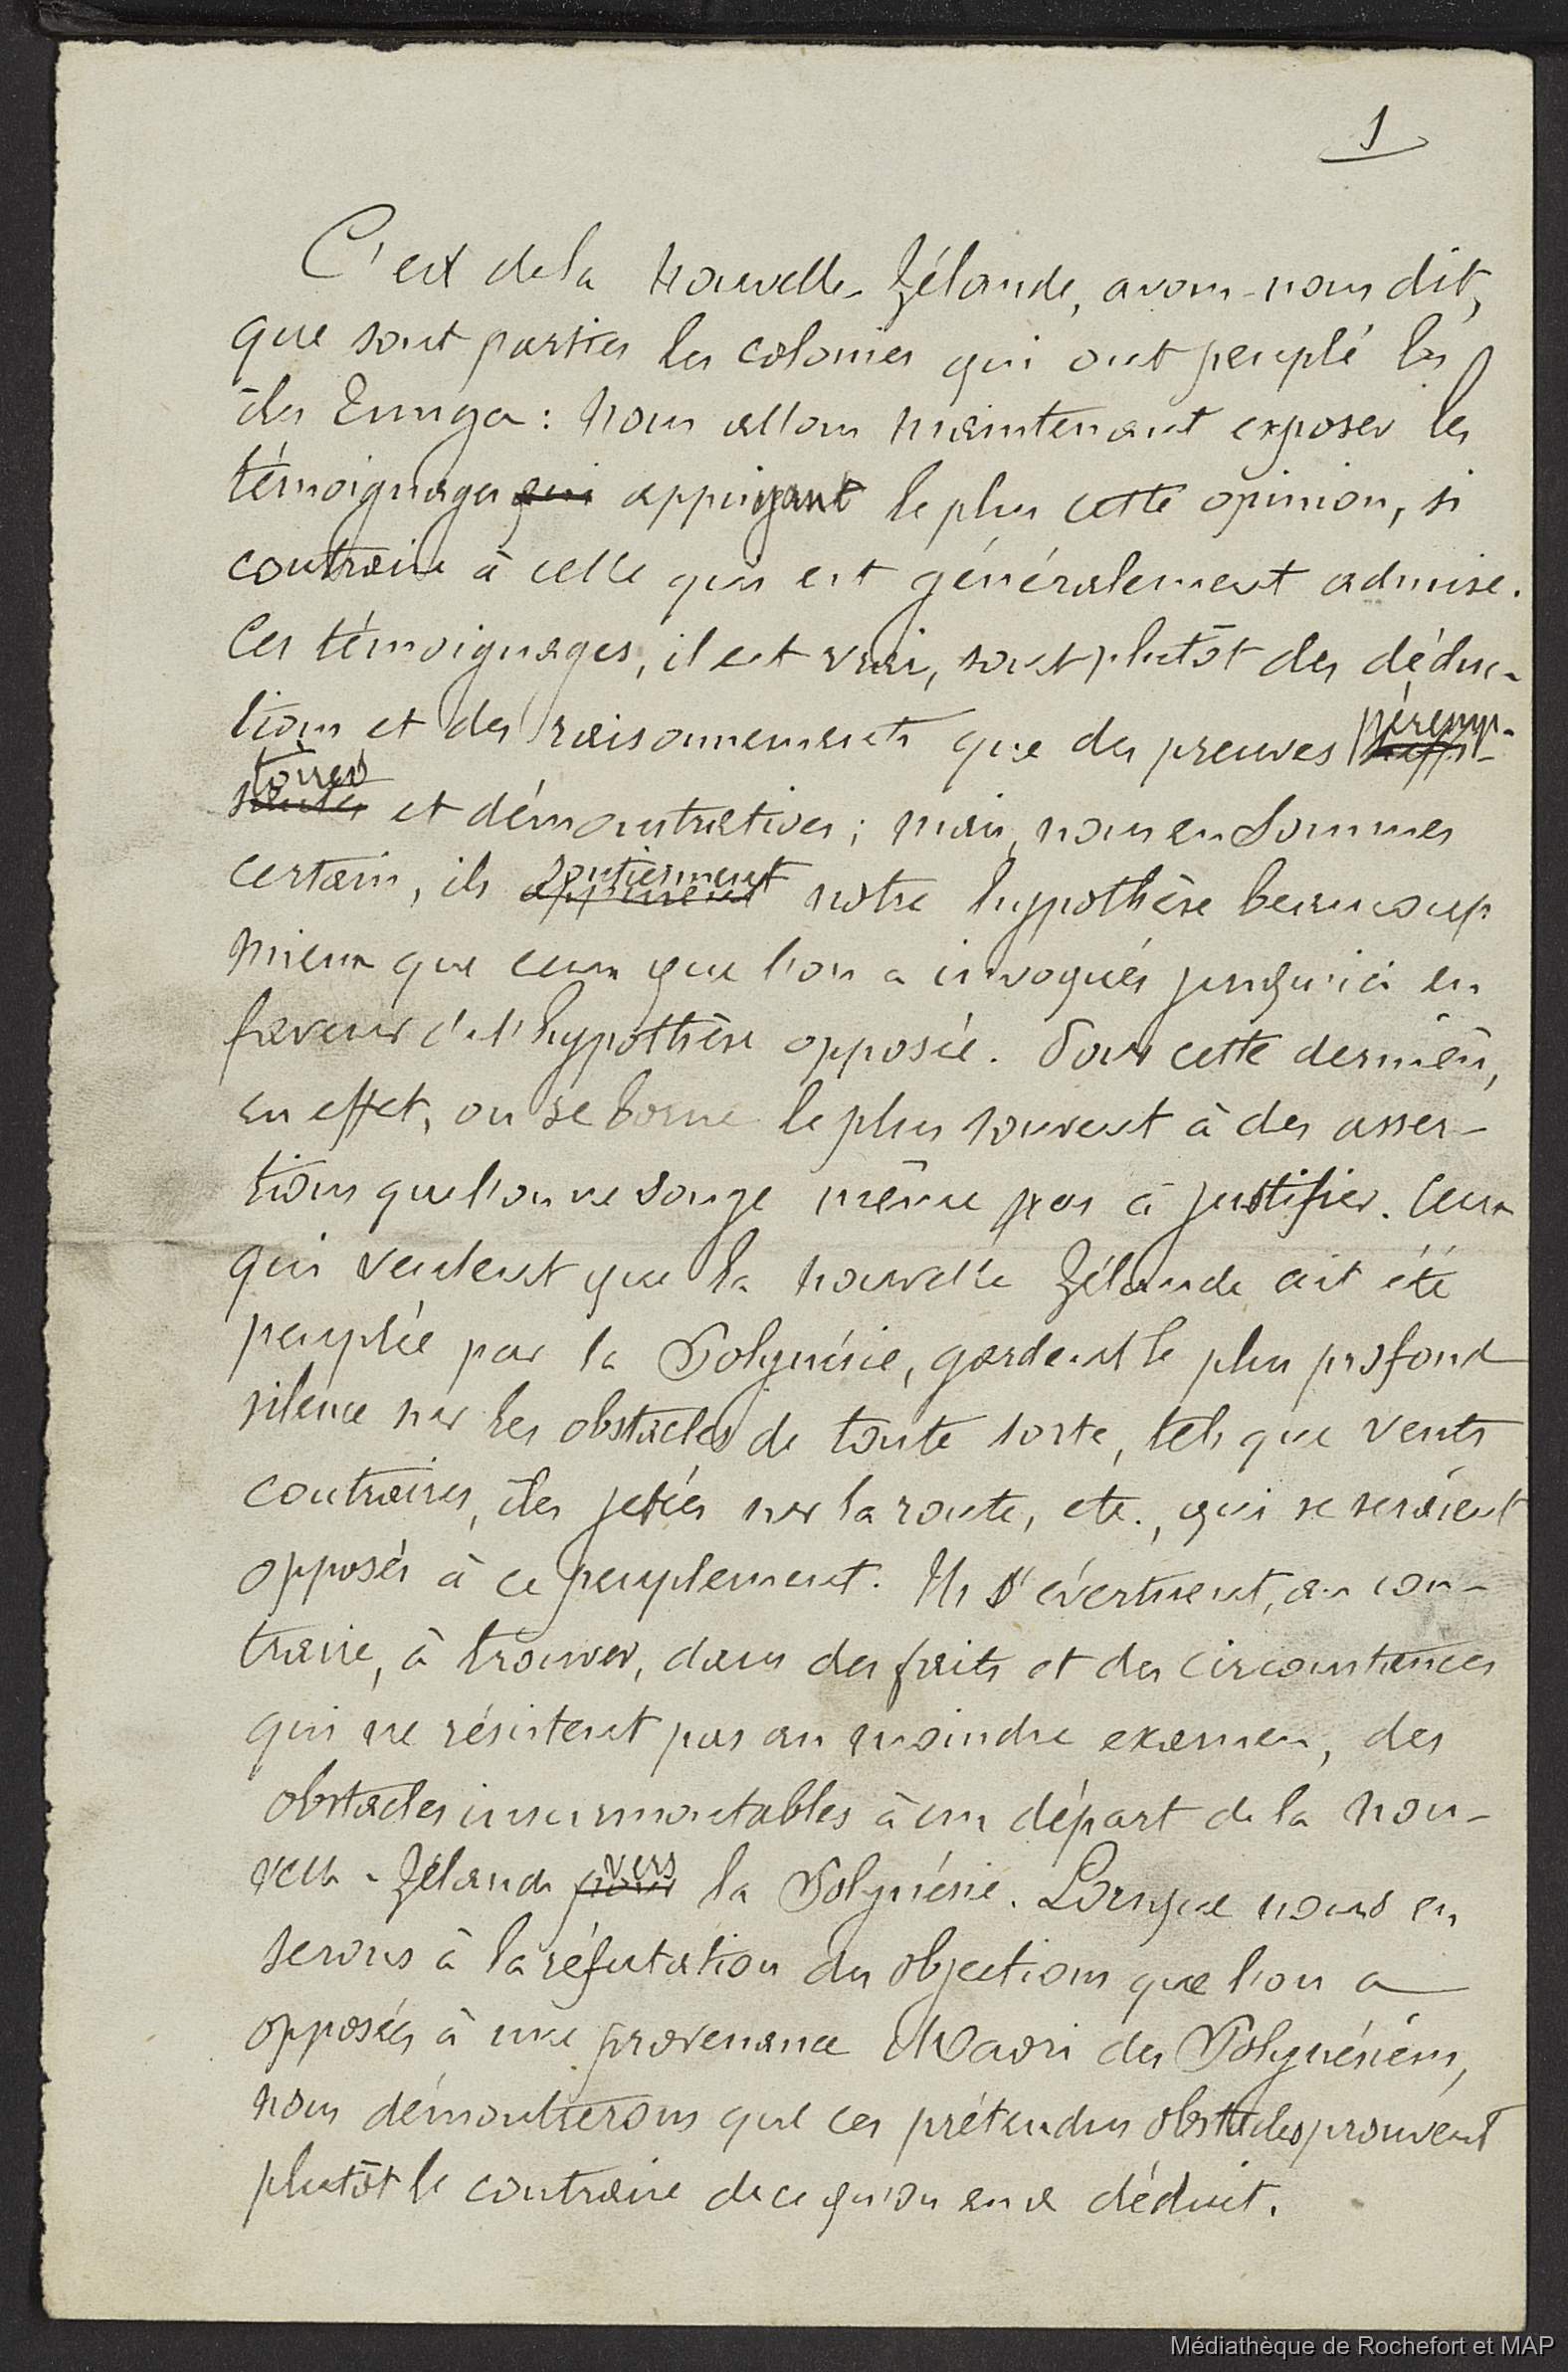 1
C'est de la Nouvelle-Zélande, avons-nous dit,
que sont parties les colonies qui ont peuplé les
îles Tunga : nous allons maintenant exposer les
témoignages qui appuyant le plus cette opinion, si
contraire à celle qui est généralement admise.
Ces témoignages, il est vrai, sont plutôt des déduc-
tions et des raisonnements que des preuves péremp-
toires et démonstratives ; mais, nous en sommes
certain, ils soutiennent notre hypothèse beaucoup
mieux que ceux que l'on a invoqués jusqu'ici en
faveur de l'hypothèse opposée. Pour cette dernière,
en effet, on se borne le plus souvent à des asser-
tions que l'on ne songe même pas à justifier. Ceux
qui veulent que la Nouvelle Zélande ait été
peuplée par la Polynésie, gardent le plus profond
silence sur les obstacles de toute sorte, tels que vents
contraires, îles jetées sur la route, etc., qui se seraient
opposés à ce peuplement. Ils s'évertuent, au con-
traire, à trouver, dans des faits et des circonstances
qui ne résistent pas au moindre examen, des
obstacles insurmontables à un départ de la Nou-
velle-Zélande pour vers la Polynésie. Lorsque nous en
serons à la réfutation des objections que l'on a
opposées à une provenance Maori des Polynésiens,
nous démontrerons que ces prétendus obstacles prouvent
plutôt le contraire de ce qu'on en a déduit.
Médiathèque de Rochefort et MAP